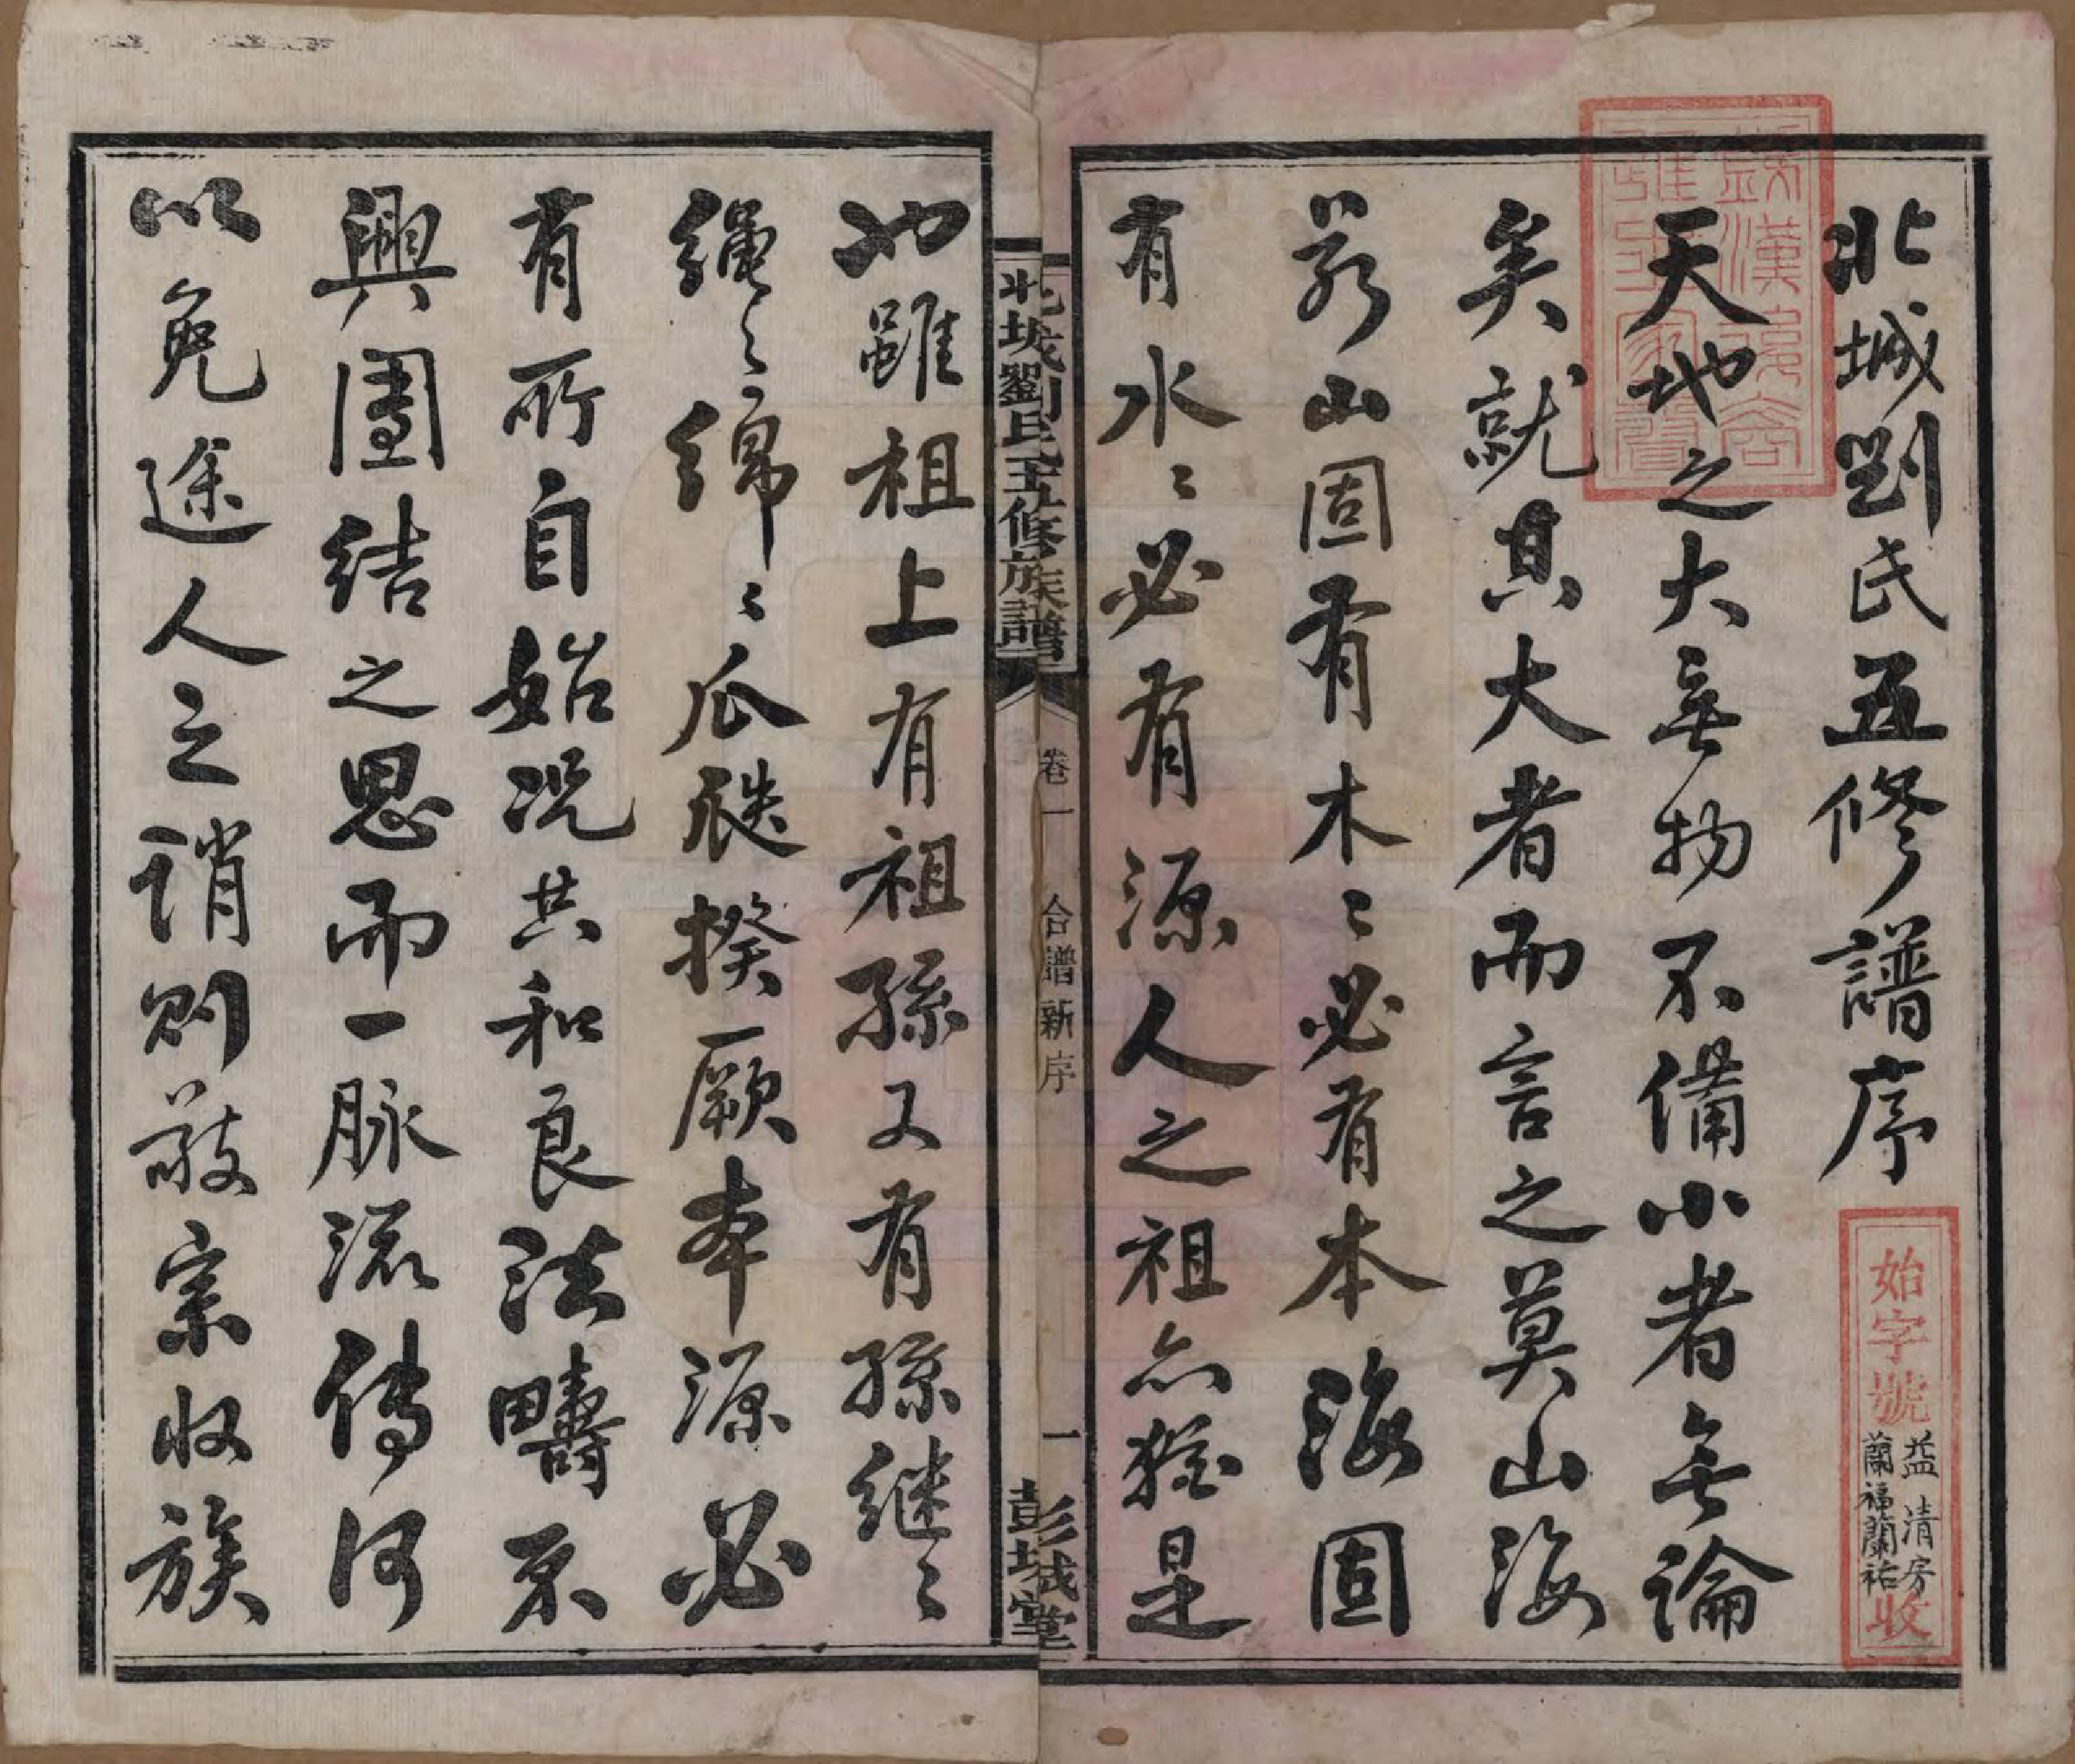 北城劉氏五修譜序
天地之大無物不備小者無論
矣就其大者而言之莫山海
若山固有木〻必有本海固
有水〻必有源人之祖亦猶是
也雖祖上有祖孫又有孫継〻
繩〻綿〻瓜瓞揆厥本源必
有所自始况共和良法疇不
興團結之思而一脉流傳何
以免途人之誚則敬宗收族
北城劉氏五修族譜
卷一
合譜新序
一
彭城堂
始字號
益清房
蘭福蘭祐
收